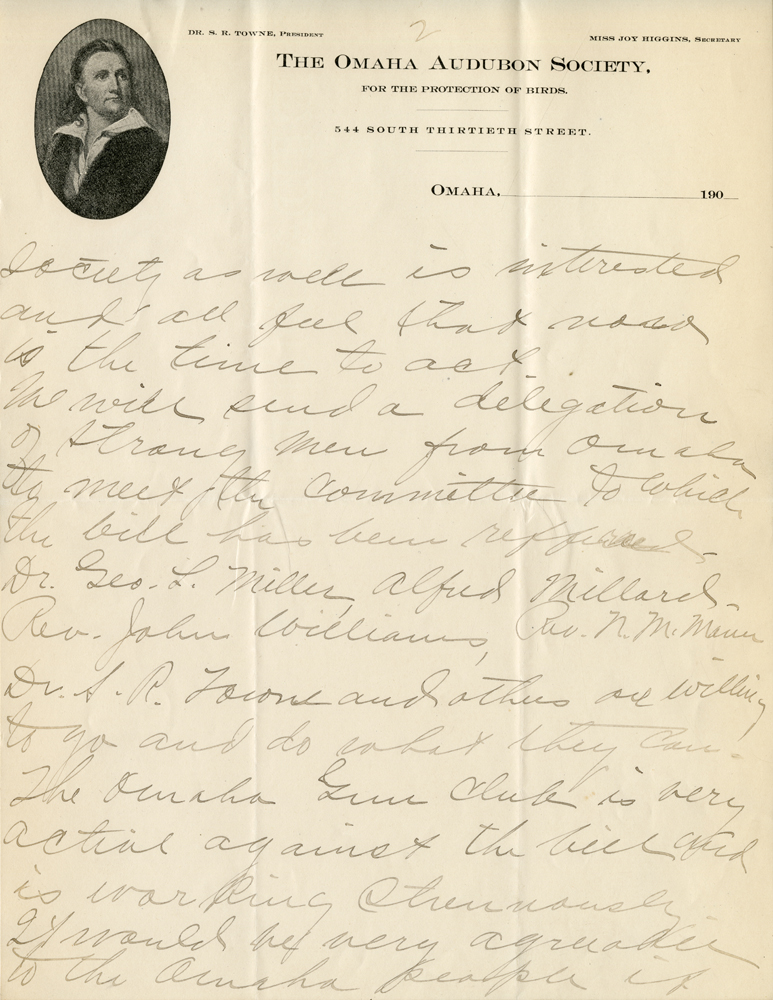 2
DR. S. R. TOWNE, PRESIDENT
MISS JOY HIGGINS, SECRETARY
THE OMAHA AUDUBON SOCIETY,
FOR THE PROTECTION OF BIRDS.
544 SOUTH THIRTIETH STREET.
OMAHA, 190
Society as well is interested
and all feel that now
is the time to act.
We will send a delegation
of strong men from Omaha
to meet the committee to which
the bill has been reffered-
Dr. Geo. L. Miller, Alfred Millard-
Rev. John Williams, Rev. N. M. Mann
Dr. S. R. Towne and others are willing
to go and do what they can-
The Omaha Gun Club is very
active against the bill and
is working strennously
It would be very agreable
to the Omaha people if